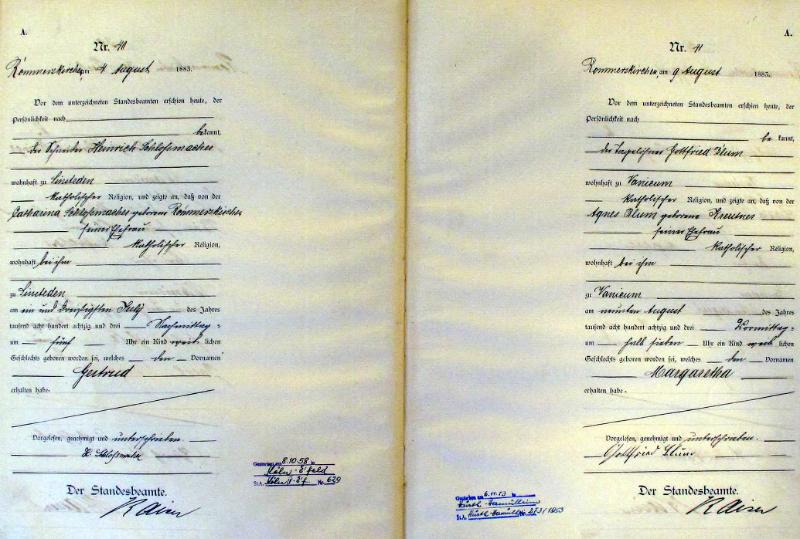 A.
Nr. 41
Rommerskirchen, am 4 August 1883.
Vor dem unterzeichneten Standesbeamten erschien heute, der
Persönlichkeit nach
bekannt,
der Schneider Heinrich Schlossmacher
wohnhaft zu Sinsteden
katholischer Religion, und zeigte an, daß von der
Catharina Schlossmacher geborene Rommerskirchen
seiner Ehefrau
katholischer Religion,
wohnhaft bei ihm
zu Sinsteden
am ein und dreißigsten July des Jahres
tausend acht hundert achtzig und drei Nachmittag=
um fünf Uhr ein Kind weib lichen
Geschlechts geboren worden sei, welches den Vornamen
Gertrud
erhalten habe.
Vorgelesen, genehmigt und unterschrieben.
H Schlossmacher
Der Standesbeamte.
Kaiser
Gestorben am 8.10.58 in
Köln
St.A. Köln Nr. 629
A.
Nr. 41
Rommerskirchen, am 9 August 1883.
Vor dem unterzeichneten Standesbeamten erschien heute, der
Persönlichkeit nach
bekannt,
der Gottfried Blum
wohnhaft zu Vanicum
katholischer Religion, und zeigte an, daß von der
Agnes Blum geborene
seiner Ehefrau
katholischer Religion,
wohnhaft bei ihm
zu Vanicum
am neunten August des Jahres
tausend acht hundert achtzig und drei Vormittag=
um halb sieben Uhr ein Kind weib lichen
Geschlechts geboren worden sei, welches den Vornamen
Margaretha
erhalten habe.
Vorgelesen, genehmigt und unterschrieben.
Gottfried Blum
Der Standesbeamte.
Kaiser
Gestorben am in
Hürth
St.A. Hürth